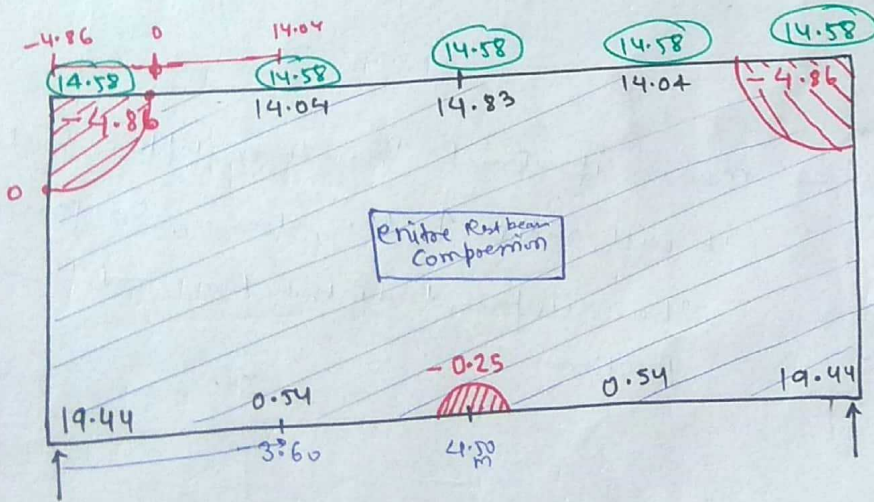 -4.86 0 14.04
14.58 14.58 14.58 14.58 14.58
-4.86 14.04 14.83 14.04 -4.86
0
Rest beam
-0.25
19.44 0.54 0.54 19.44
3.60 4.50
m